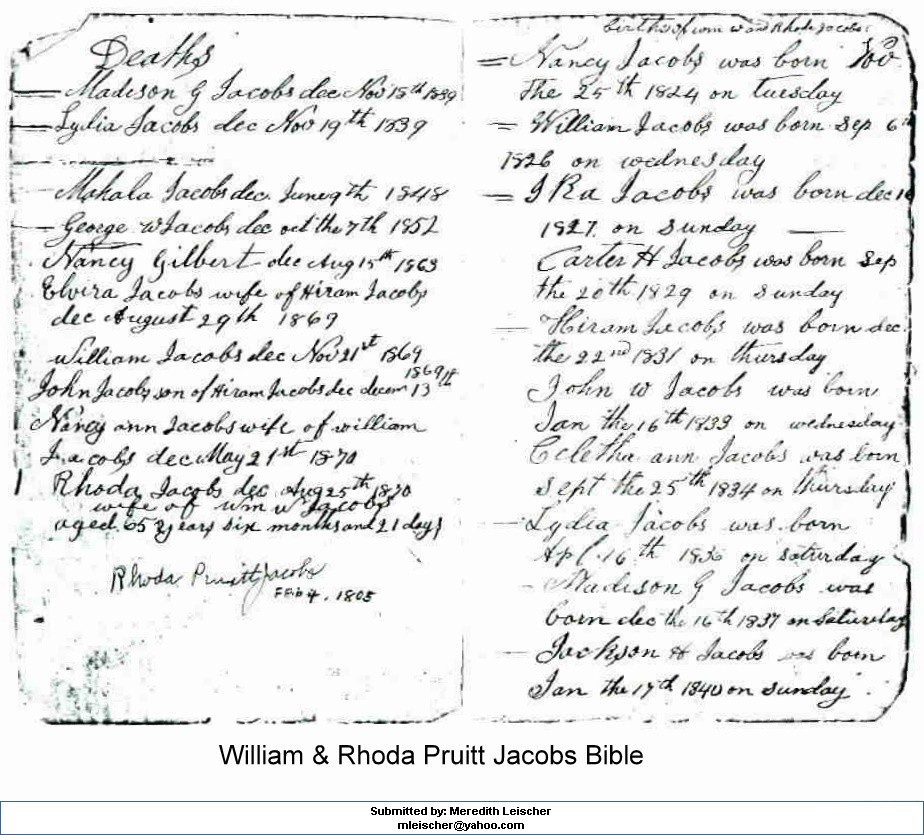 Deaths
Madison G Jacobs dec Nov 15th 1839
Lydia Jacobs dec Nov 19th 1839
Mahala Jacobs dec. June 9th 1848
George W Jacobs dec oct the 7th 1852
Nancy Gilbert dec Aug 15th 1863
Elvira Jacobs wife of Hiram Jacobs
dec August 29th 1869
William Jacobs dec Nov 21st 1869
John Jacobs son of Hiram Jacobs dec decem 13th 1869
Nancy ann Jacobs wife of william
Jacobs dec May 21st 1870
Rhoda Jacobs dec Aug 25th 1870
wife of Wm W Jacobs
aged 65 years six months and 21 days
Rhoda Pruitt Jacobs
Feb 4, 1805
births of wm w and Rhoda Jacobs
Nancy Jacobs was born Nov
the 25th 1824 on tuesday
William Jacobs was born Sep 6th
1826 on wednesday
I Ra Jacobs was born dec 1
1827 on Sunday
Carter H Jacobs was born Sep
the 20th 1829 on Sunday
Hiram Jacobs was born dec
the 22nd 1831 on thursday
John W Jacobs was born
Jan the 16th 1833 on wednesday
Celetha ann Jacobs was born
Sept the 25th 1834 on thursday
Lydia Jacobs was born
Apl 16th 1836 on saturday
Madison G Jacobs was
born dec the 16th 1837 on Saturday
Jackson H Jacobs was born
Jan the 19th 1840 on Sunday
William & Rhoda Pruitt Jacobs Bible
Submitted by: Meredith Leischer
mleischer@yahoo.com